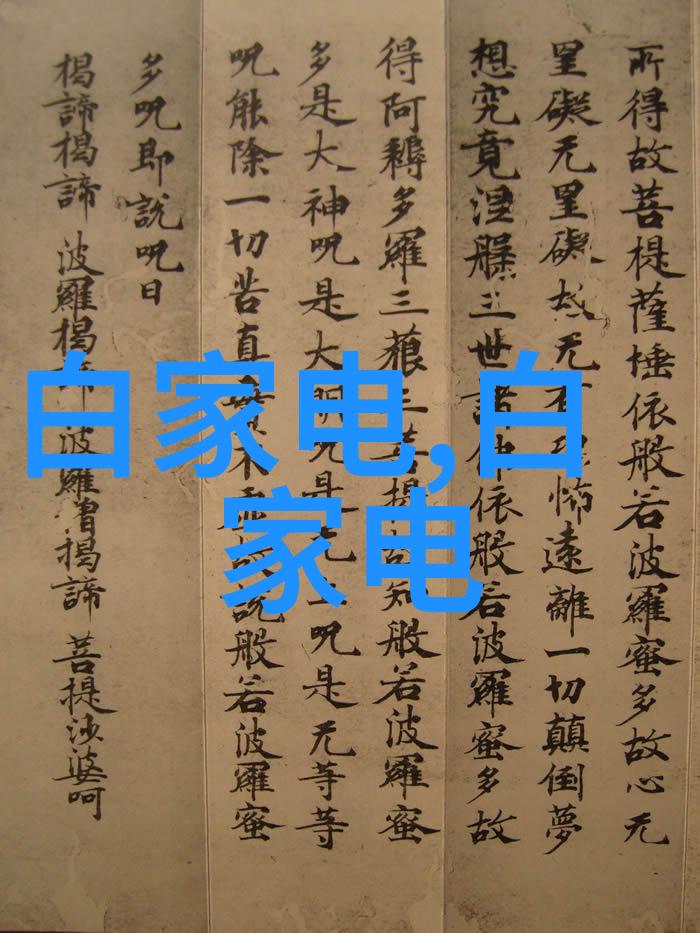 所得故菩提薩埵依般若波羅蜜多故心无
罣礙无罣礙故无有恐怖遠離一切顛倒夢
想究竟涅槃三世諸佛依般若波羅蜜多故
得阿耨多羅三藐三菩提故知般若波羅蜜
多是大神呪是大明呪是无上呪是无等等
呪能除一切苦真實不虛故說般若波羅蜜
多呪即說呪曰
揭諦揭諦 波羅揭諦 波羅僧揭諦 菩提沙婆呵
白家电,白
家电